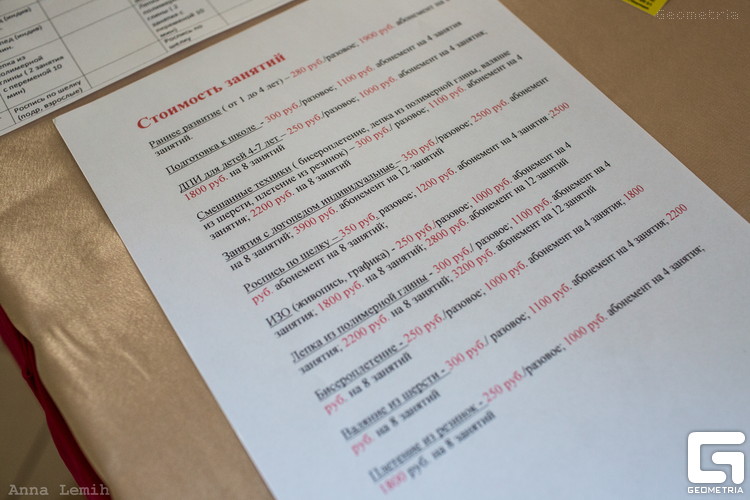 Geometria
мин.
Лепка из
полимерной
глины ( 2 занятия
с переменой 10
мин)
Роспись по шелку
(подр, взрослые)
занятия с
переменой 10
мин)
Роспись по
шелку
Стоимость занятий
Раннее развитие ( от 1 до 4 лет) – 280 руб./разовое, 1900 руб. абонемент на 8
занятий.
Подготовка к школе - 300 руб./разовое; 1100 руб. абонемент на 4 занятия
ДПИ для детей 4-7 лет – 250 руб./разовое; 1000 руб. абонемент на 4 занятия;
1800 руб. на 8 занятий
Смешанные техники ( бисероплетение, лепка из полимерной глины, валяние
из шерсти, плетение из резинок) – 300 руб./ разовое; 1100 руб. абонемент на 4
занятия; 2200 руб. на 8 занятий
Занятия с логопедом индивидуальные – 350 руб./разовое; 2500 руб. абонемент
на 8 занятий; 3900 руб. абонемент на 12 занятий
Роспись по шелку – 350 руб. разовое; 1200 руб. абонемент на 4 занятия ;2500
руб. абонемент на 8 занятий;
ИЗО (живопись, графика) - 250 руб./разовое; 1000 руб. абонемент на 4
занятия; 1800 руб. на 8 занятий; 2800 руб. абонемент на 12 занятий
Лепка из полимерной глины - 300 руб./ разовое; 1100 руб. абонемент на 4
занятия; 2200 руб. на 8 занятий; 3200 руб. абонемент на 12 занятий
Бисероплетение - 250 руб./разовое; 1000 руб. абонемент на 4 занятия; 1800
руб. на 8 занятий
Валяние из шерсти - 300 руб./ разовое; 1100 руб. абонемент на 4 занятия; 2200
руб. на 8 занятий
Плетение из резинок - 250 руб./разовое; 1000 руб. абонемент на 4 занятия;
1800 руб. на 8 занятий
Anna Lemih
GEOMETRIA